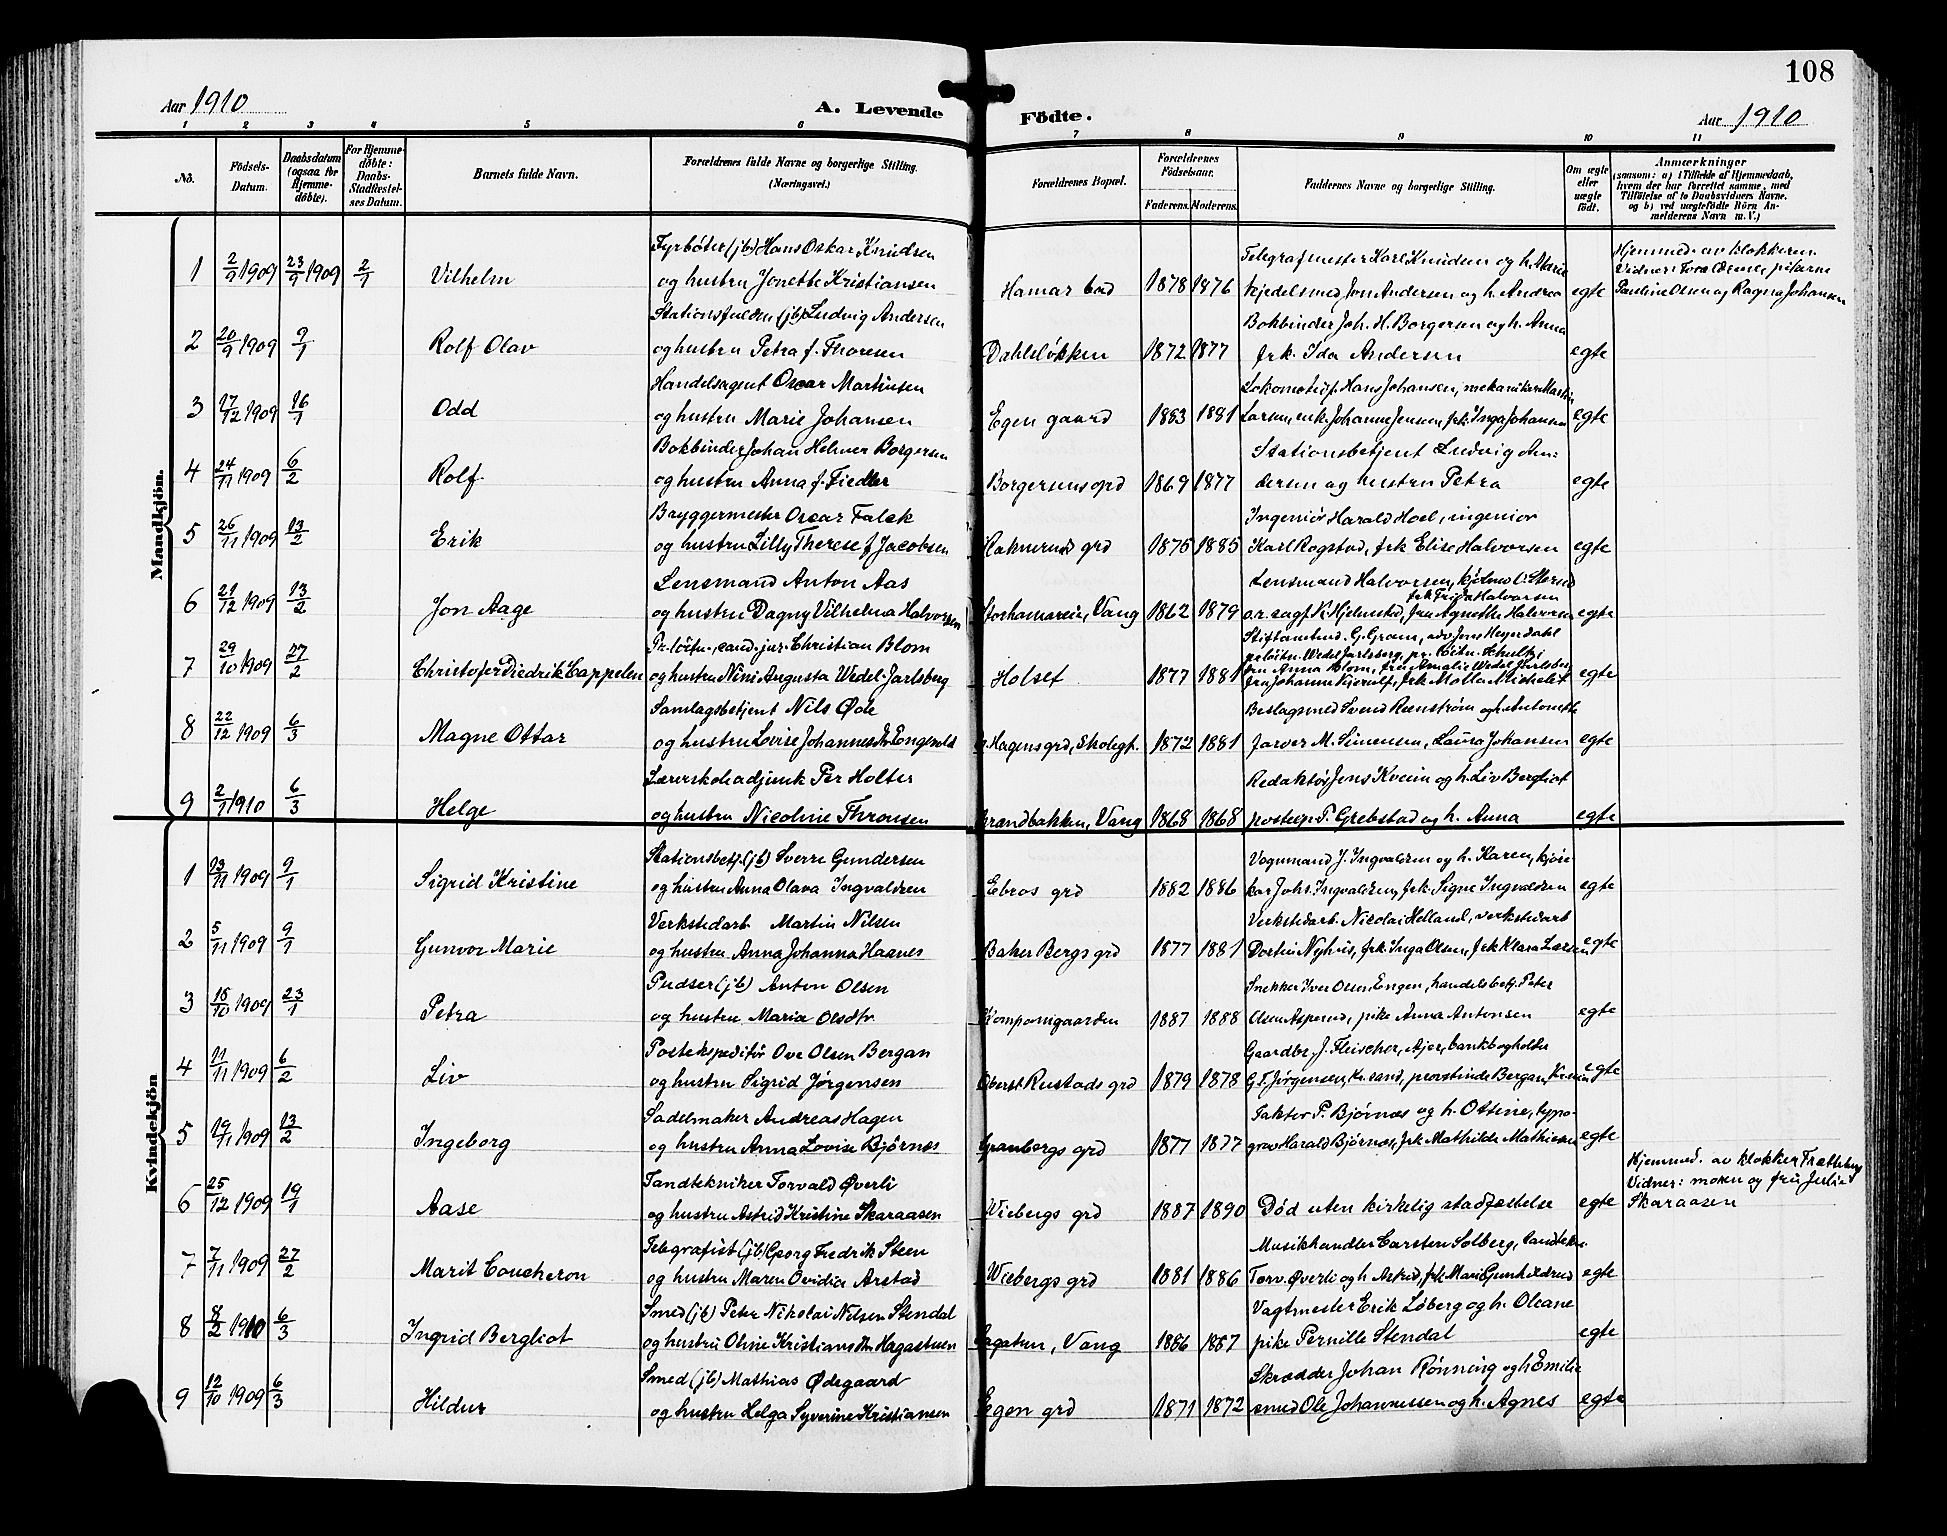 108
Aar 1910
A. Levende Födte.
Aar 1910
1 2 3 4 5 6 7 8 9 10 11
No. Födsels-Datum. Daabsdatum (ogsaa for Hjemmedöbte). For Hjemmedöbte: Daabs-Stadfæstelses Datum. Barnets fulde Navn. Forældrenes fulde Navne og borgerlige Stilling. (Næringsvei.) Forældrenes Bopæl. Forældrenes Födselsaar. Faderens. Moderens. Faddernes Navne og borgerlige Stilling. Om ægte eller uægte födt. Anmærkninger (saasom: a) i Tilfælde af Hjemmedaab, hvem der har forrettet samme, med Tilföielse af to Daabsvidners Navne. og b) ved uægtefödte Börn Anmelderens Navn m. V.)
Mandkjön.
Fyrbøter (jb) Hans Oskar Knudsen Telegrafmester Karl Knudsen og h. Marie Hjemmed. av klokkeren
1 2/9 1909 23/9 1909 2/1 Vilhelm og hustru Jonette Kristiansen Hamar 1878 1876 kjedelsmed Jon Andersen og h. Andrea egte Pauline Olsen og Ragna Johansen
Stationsfuldm (jb) Ludvig Andersen Bokbinder Joh. H. Borgersen og h. Anna
2 20/9 1909 9/1 Rolf Olav og hustru Petra f. Thoresen Dahleløkken 1872 1877 frk. Ida Andersen egte
Handelsagent Oscar Martinsen Lokomotivf. Hans Johansen, mekaniker Martin
3 17/12 1909 16/1 Odd og hustru Marie Johansen Egen gaard 1883 1881 Larsen, enk. Johanne Jensen, frk. Inga Johansen egte
Bokbinder Johan Helmer Borgersen Stationsbetjent Ludvig An:
4 24/11 1909 6/2 Rolf og hustru Anna f. Fiedler Borgersens grd 1869 1877 dersen og hustru Petra egte
Bryggermester Oscar Falck Ingeniør Harald Hoel, ingeniør
5 26/11 1909 13/2 Erik og hustru Lilly Therese f. Jacobsen grd 1875 1885 Karl Rogstad, frk Elise Halvorsen egte
Lensmand Anton Aas Lensmand Halvorsen,
frk Frida Halvorsen
6 21/12 1909 13/2 Jon Aage og hustru Dagny Vilhelma Halvorsen Storhamarein, Vang 1862 1879 o.r. sagf. K. Hjelmstad, fru Agnethe Halvorsen egte
Pr. løitn., cand. jur. Christian Blom Stiftamtmd. G. Gram, adv Jens Heyerdahl
pr. løitn. Wedel Jarlsberg, pr. løitn. Schultz
7 29/10 1909 27/2 Christofer Diedrik Cappelen og hustru Nini Augusta Wedel-Jarlsberg Holset 1877 1881 fru Anna Blom, fru Amalie Wedel Jarlsberg egte
fru Johanne Kjerulf, frk Molla Michelet
Samlagsbetjent Nils Øde Beslagsmed Svend Renstrøm og h. Antonette
8 22/12 1909 6/3 Magne Ottar og hustru Lovise Johannesdtr Engevold Hagens grd, Skolegt. 1872 1881 farver M. Simensen, Laura Johansen egte
Lærerskoleadjunk Per Holter Redaktør Jens Kveim og h. Liv Bergliot
9 2/1 1910 6/3 Helge og hustru Nicoline Thronsen Brændbakken, Vang 1868 1868 postexp. P. Grebstad og h. Anna egte
Kvindekjön
Stationsbetj. (jb) Sverre Gundersen Vognmand J. Ingvaldsen og h. Karen, kjøre
1 23/11 1909 9/1 Sigrid Kristine og hustru Anna Olava Ingvaldsen Ebros grd 1882 1886 kar Johs. Ingvaldsen, frk. Signe Ingvaldsen egte
Verkstedarb Martin Nilsen Verkstedarb. Nicolai Helland, verkstedarb
2 5/11 1909 9/1 Gunvor Marie og hustru Anna Johanna Haanes Baker Bergs grd 1877 1881 Nyhus, frk. Inga Olsen, frk Klara Larsen egte
Pudser (jb) Anton Olsen Snekker Iver Olsen Engen, handelsbetj. Peter
3 15/10 1909 23/1 Petra og hustru Maria Olsdtr Kompanigaarden 1887 1888 Olsen Asperud, pike Anna Antonsen egte
Postekspeditør Ove Olsen Bergan Gaardbr. J. Fleischer, Ajer, bankbogholder
4 11/11 1909 6/2 Liv og hustru Sigrid Jørgensen Oberst Rustads grd 1879 1878 G. F. Jørgensen, Kr.sand, provstinde Bergan, egte
Sadelmaker Andreas Hagen Faktor P. Bjørnæs og h. Ottine, typo-
5 19/11 1909 13/2 Ingeborg og hustru Anna Lovise Bjørnæs Granbergs grd 1877 1877 graf Harald Bjørnæs, frk Mathilde Mathiesen egte
Tandtekniker Torvald Øverli Hjemmed. av klokker Frætteberg
Vidner: moren og fru Julie
6 25/12 1909 19/1 Aase og hustru Astrid Kristine Skaraasen Wiebergs grd 1887 1890 Død uten kirkelig stadfæstelse egte Skaraasen
Telegrafist (jb) Georg Fredrik Steen Musikhandler Carsten Solberg, tandtekn.
7 7/11 1909 27/2 Marit Coucheron og hustru Maren Ovidia Arstad Wiebergs grd 1881 1886 Torv. Øverli og h. Astrid, frk. Marie Gunhildrud egte
Smed (jb) Peter Nikolai Nilsen Stendal Vagtmester Erik Løberg og h. Oleane
8 8/2 1910 6/3 Ingrid Bergliot og hustru Oline Kristiansdtr Hagastuen Sagatun, Vang 1886 1887 pike Pernille Stendal egte
Smed (jb) Mathias Ødegaard Skrædder Johan Rønning og h Emilie
9 12/10 1909 6/3 Hildur og hustru Helga Syverine Kristiansen Egen grd 1871 1872 smed Ole Johannessen og h. Agnes egte